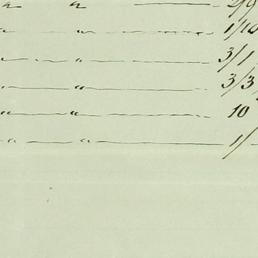 " " — 2/9
" " — 1/10
" " — 3/1
" " — 3/3
" " — 10
" " — 1/